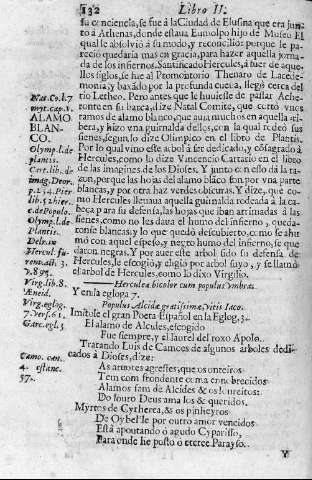 132 Libro II.
su conciencia, se fue a la Ciudad de Elusina que era jun
to à Athenas, donde estaua Eumolpo hijo de Museo El
qual le absoluió a su modo, y reconcilió: porque le pa-
reció quedaria mas en gracia, para hazer aquella jorna-
da de los infiernos. Santificado Hercules, â fuer de aque-
llos siglos, se fue al Promontorio Thenaro de Lacede-
monia, y baxádo por la profunda cueua, llegó cerca del
rio Letheo. Pero antes que le huuiesse de passar Ache-
ronte en su barca, dize Natal Comite, que cortó vnos
ramos de alamo blanco, que auia muchos en aquella ri-
bera, y hizo vna guirnalda dellos, con la qual rodeó sus
sienes, segun lo dize Olimpico en el libro de Plantis.
Por lo qual vino este arbol à ser dedicado, y cōsagrado à
Hercules, como lo dize Vincencio Cartario en el libro
de las imagines de los Dioses. Y junto con ello dá la ra-
zon, porque las hojas del alamo blāco son por vna parte
blancas, y por otra haz verdes obscuras. Y dize, que co-
mo Hercules lleuaua aquella guirnalda rodeada à la ca-
beça para su defensa, las hojas que iban arrimadas à las
sienes, como no les daua el humo del infierno, queda-
ronse blancas, y lo que quedó descubierto, como se ahu
mó con aquel espeso, y negro humo del infierno, se que
daron negras. Y por auer este arbol sido su defensa de
Hercules, le escogió, y eligió por arbol suyo, y se llamó
el arbol de Hercules, como lo dixo Virgilio.
Herculea bicolor cum populus vmbras
Y en la egloga 7.
Populus Alcidæ gratissima, vitis Iaco.
Imitole el gran Poeta Español en la Eglog. 3.
El alamo de Alcides, escogido
Fue siempre, y el laurel del roxo Apolo.
Tratando Luis de Camoes de algunos arboles dedi-
cados à Dioses, dize:
As aruores agrestes, que os outeiros
Tem com frondente coma ennobrecidos
Alamos sam de Alcides & os loureiros
Do louro Deus amados & queridos.
Myrtos de Cytherea, & os pinheyros
De Cybelle por outro amor vencidos
Està apontando o agudo Cyparisso,
Para onde he posto o eterco Parayso.
Y
Nat. Co. l. 7
myt. cap. 1.
ALAMO
BLAN-
CO.
Olymp. l. de
plantis.
Cart. lib. de
imag. Deor.
Olymp. l. de
Plantis.
Virg. lib. 8.
Æneid.
Virg. eglog.
7. vers. 61.
Garc. egl. 3
Camo. can.
4. estanc.
57.